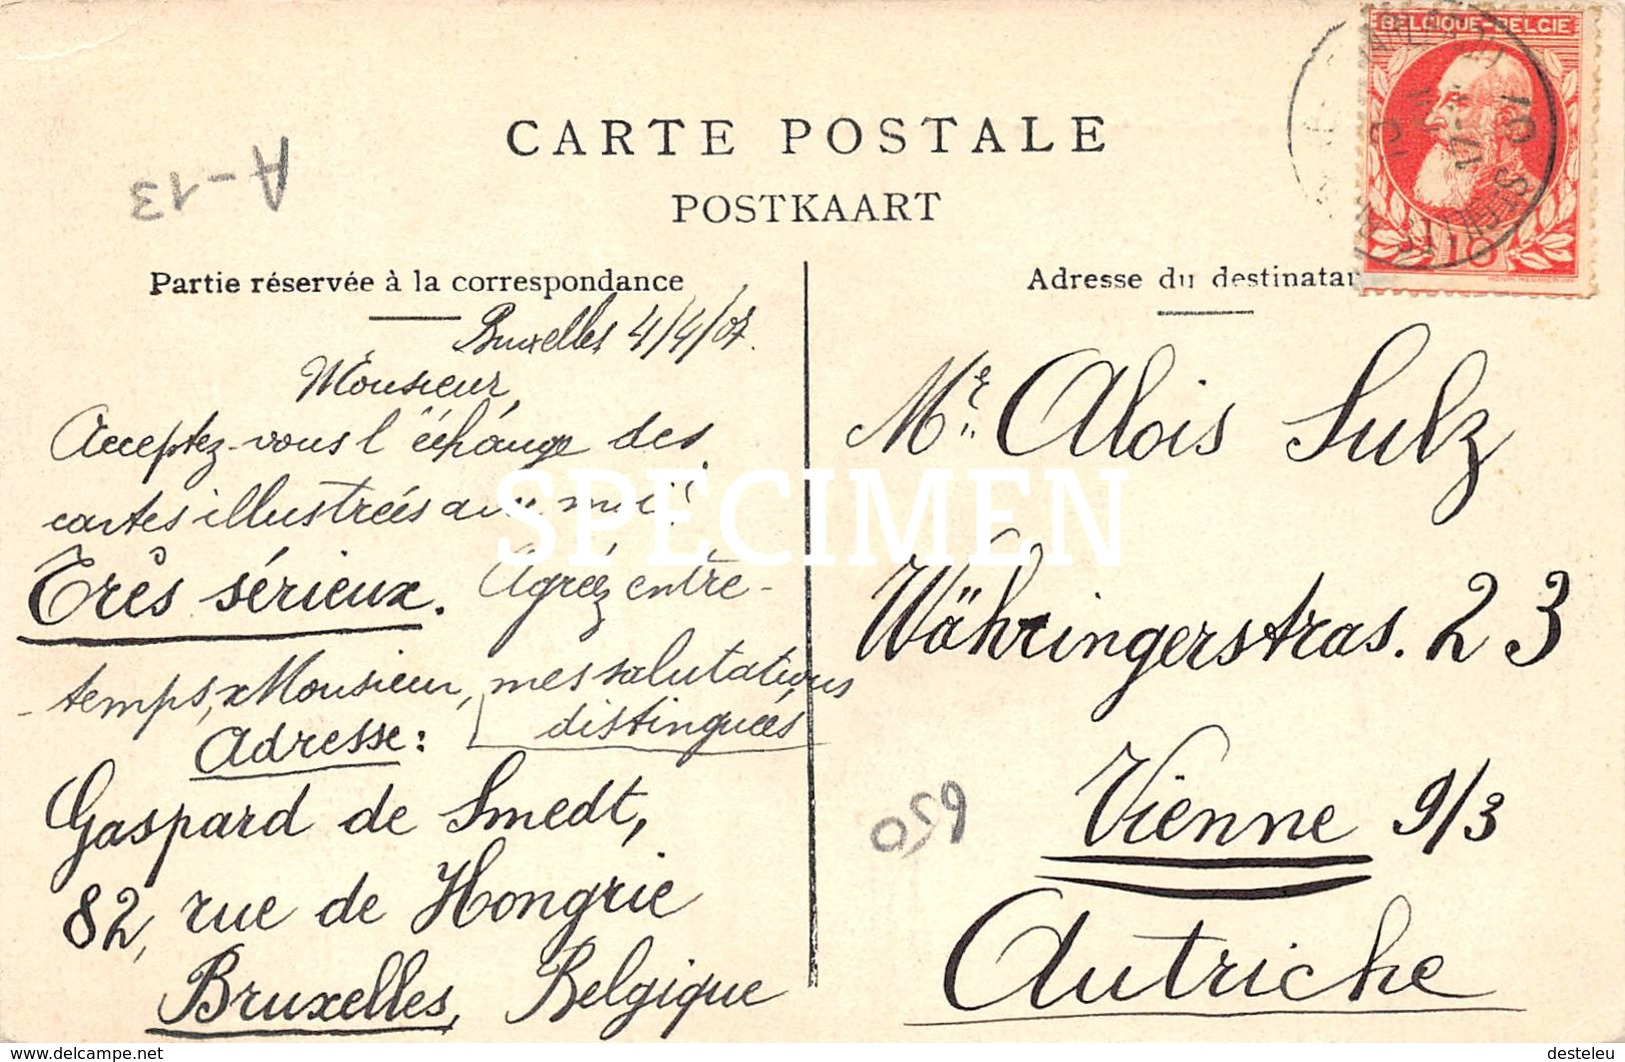 CARTE POSTALE
POSTKAART
A-13
Partie réservée à la correspondance
Bruxelles 4/4/07.
Monsieur,
Acceptez-vous l'échange des
cartes illustrées avec moi?
Très sérieux. Agréez entre-
temps, Monsieur, mes salutations
distinguées
Adresse:
Gaspard de Smedt,
82, rue de Hongrie
Bruxelles, Belgique
BELGIQUE-BELGIE
10
Adresse du destinatai
Mr. Alois Sulz
Währingerstras. 23
Vienne 9/3
Autriche
650
SPECIMEN
https://www.delcampe.net
desteleu